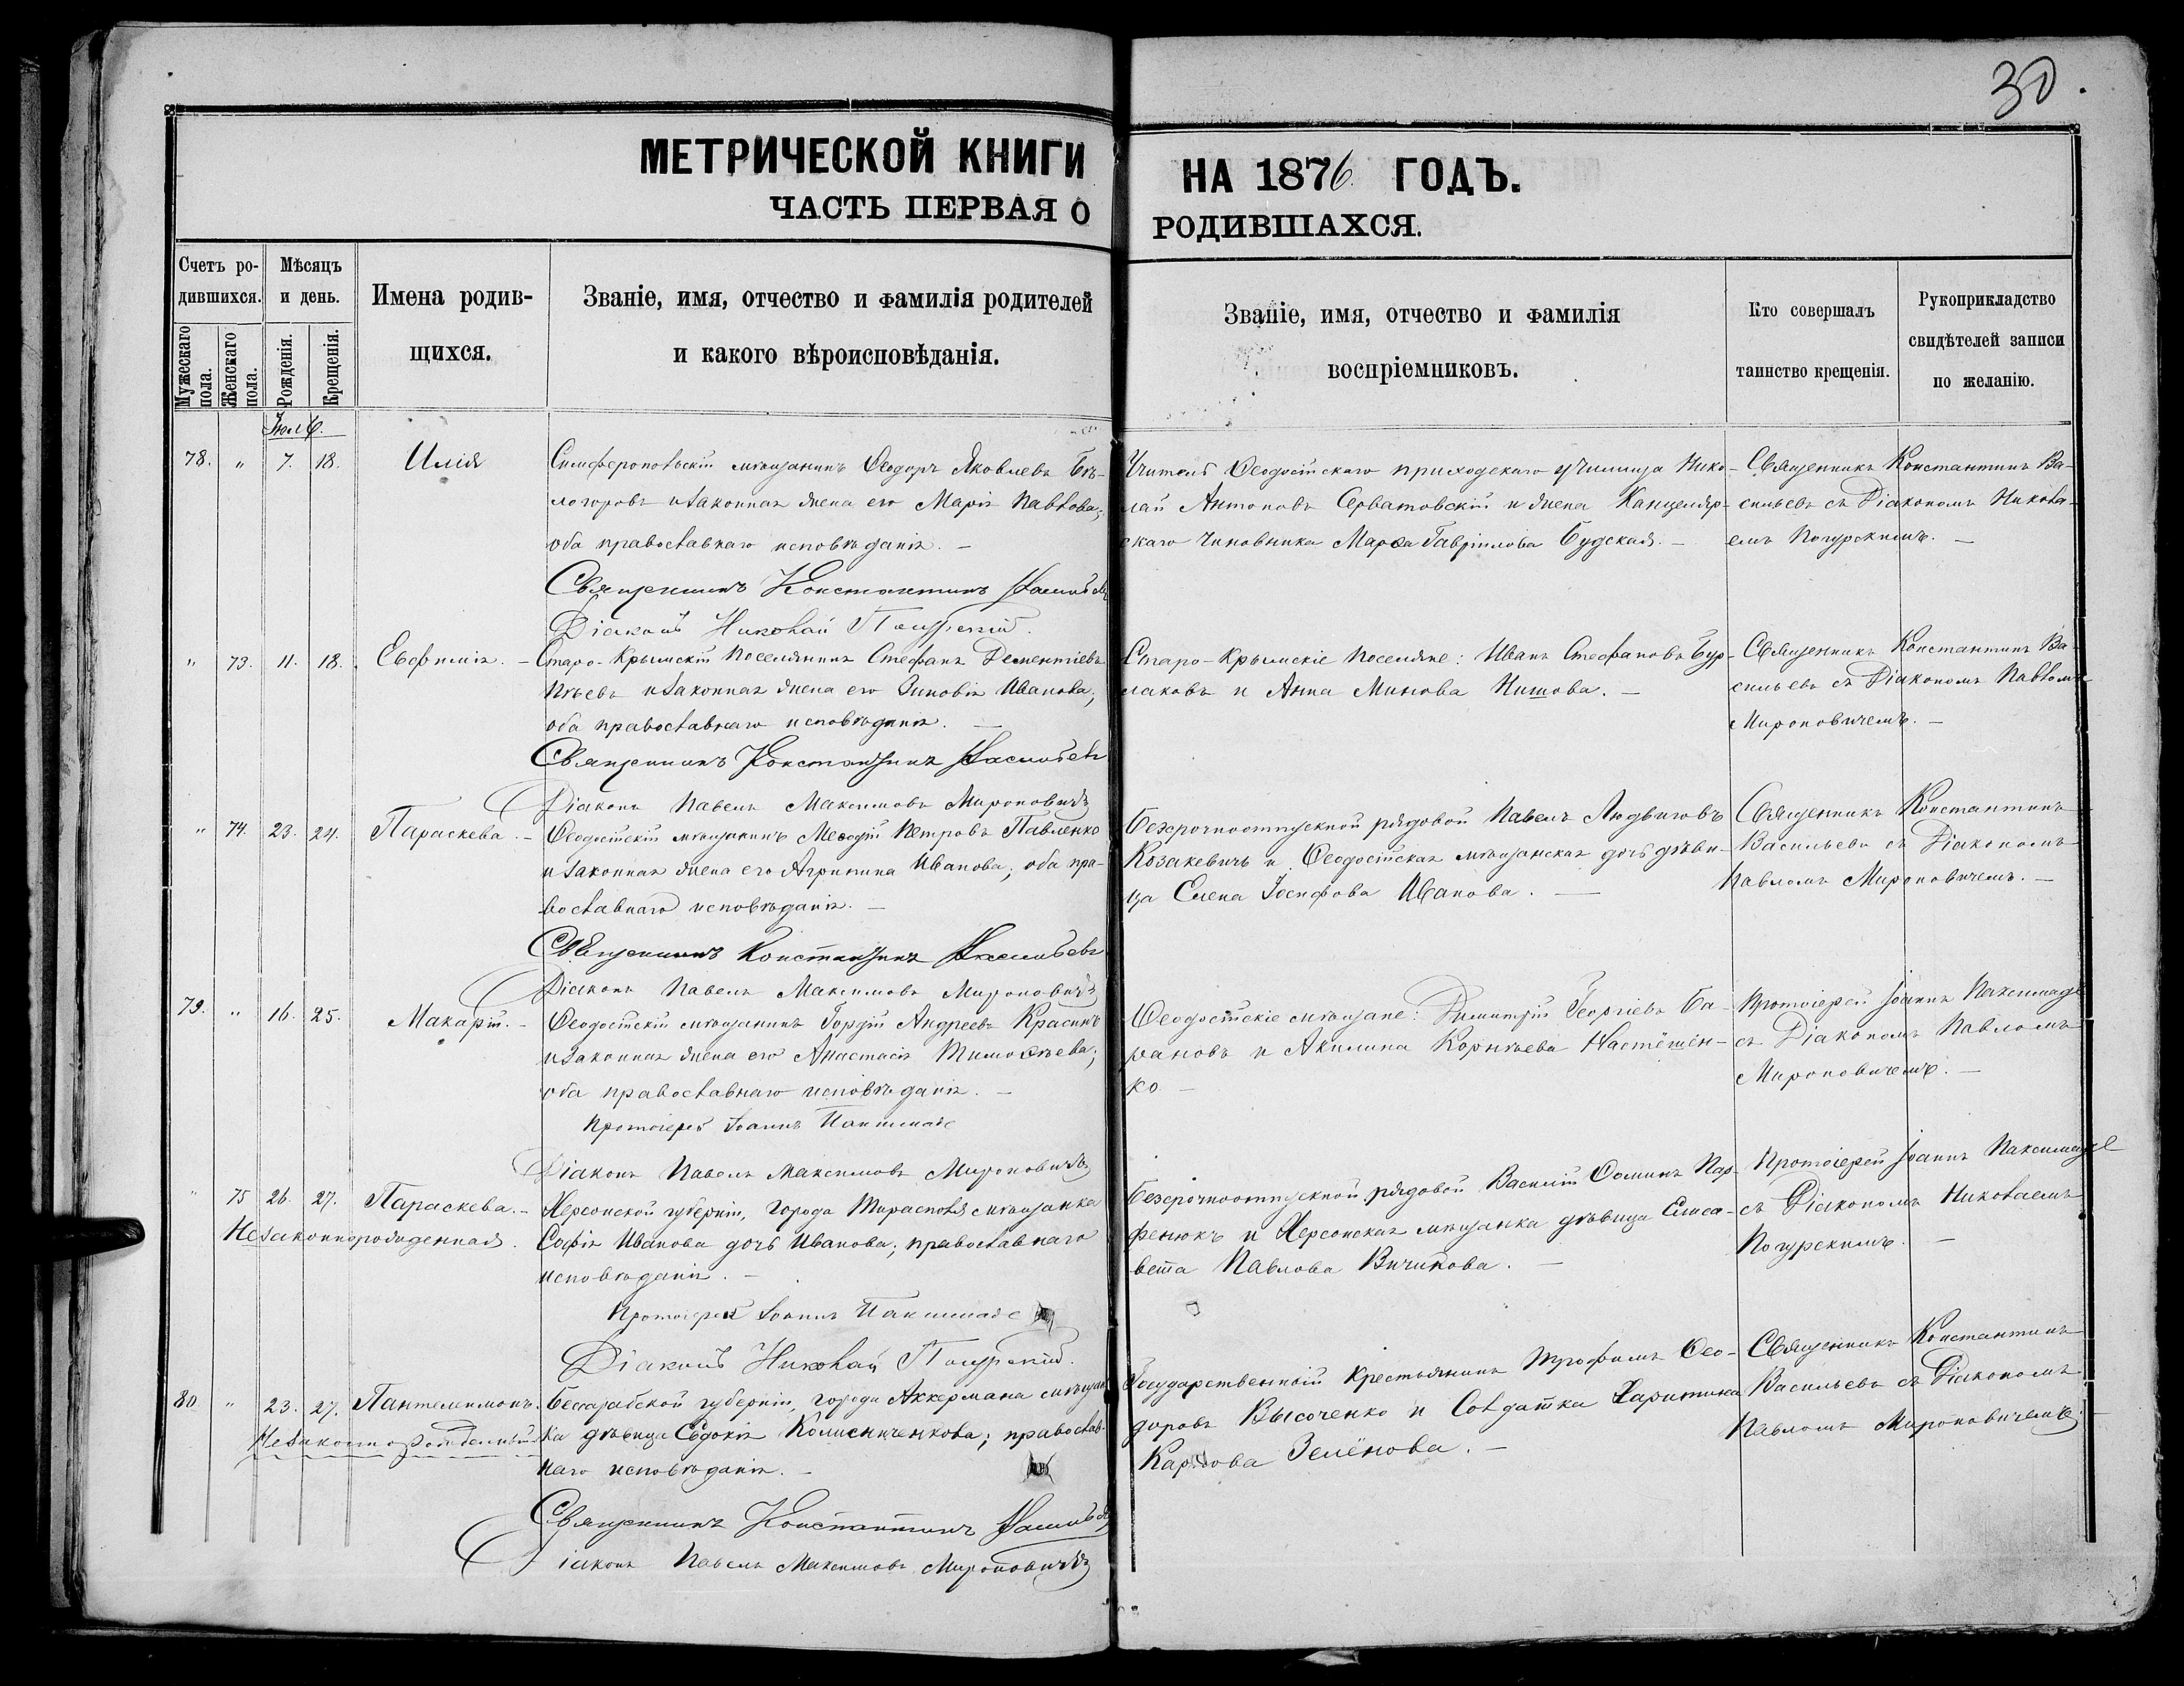 30.
МЕТРИЧЕСКОЙ КНИГИ НА 1876 ГОДЪ.
ЧАСТЬ ПЕРВАЯ О РОДИВШАХСЯ.
Счетъ ро-
дившихся.
Мужескаго пола.
Женскаго пола.
Мѣсяцъ
и день.
Рожденія.
Крещенія.
Имена родив-
щихся.
Званіе, имя, отчество и фамилія родителей
и какого вѣроисповѣданія.
Званіе, имя, отчество и фамилія
воспріемниковъ.
Кто совершалъ
таинство крещенія.
Рукоприкладство
свидѣтелей записи
по желанію.
78. " 7. 18. Илія
Симферопольскій мѣщанинъ Ѳеодоръ Яковлевъ Бѣ-
логоровъ и законная жена его Марія Павлова;
оба православнаго исповѣданія. —
Священникъ Константинъ Васильевъ
Діаконъ Николай Погурскій.
Учитель Ѳеодосійскаго приходскаго училища Нико-
лай Антоновъ Серватовскій и жена Канцеляр-
скаго Чиновника Марѳа Гавріилова Будская. —
Священникъ Константинъ Ва-
сильевъ съ Діакономъ Никола-
емъ Погурскимъ. —
" 73. 11. 18. Евфимія. —
Старо-Крымскій Поселянинъ Стефанъ Дементіевъ
и законная жена его Зиновія Иванова;
оба православнаго исповѣданія. —
Священникъ Константинъ Васильевъ
Діаконъ Павелъ Максимовъ Мироновичъ
Старо-Крымскіе Поселяне: Иванъ Стефановъ Бур-
лаковъ и Анна Минова Нишова. —
Священникъ Константинъ Ва-
сильевъ съ Діакономъ Павломъ
Мироновичемъ. —
" 74. 23. 24. Параскева. —
Ѳеодосійскій мѣщанинъ Меѳодій Петровъ Павленко
и законная жена его Агрипина Иванова; оба пра-
вославнаго исповѣданія. —
Священникъ Константинъ Васильевъ
Діаконъ Павелъ Максимовъ Мироновичъ
Безсрочноотпускной рядовой Павелъ Людвиговъ
Козакевичъ и Ѳеодосійская мѣщанская дочь дѣви-
ца Елена Іосифова Иванова. —
Священникъ Константинъ
Васильевъ съ Діакономъ
Павломъ Мироновичемъ. —
79. " 16. 25. Макарій. —
Ѳеодосійскій мѣщанинъ Гордій Андреевъ Красинъ
и законная жена его Анастасія Тимоѳѣева;
оба православнаго исповѣданія. —
Протоіерей Іоаннъ Паксимаде
Діаконъ Павелъ Максимовъ Мироновичъ
Ѳеодосійскіе мѣщане: Димитрій Георгіевъ Ба-
рановъ и Акилина Корнѣева Настёшен-
ко —
Протоіерей Іоаннъ Паксимаде
съ Діакономъ Павломъ
Мироновичемъ. —
" 75 26. 27. Параскева. —
Незаконнорожденная.
Херсонской губерніи, города Тирасполя мѣщанка
Софія Иванова дочь Иванова; православнаго
исповѣданія. —
Протоіерей Іоаннъ Паксимаде
Діаконъ Николай Погурскій.
Безсрочноотпускной рядовой Василій Ѳоминъ Пар-
фенюкъ и Херсонская мѣщанка дѣвица Елиса-
вета Павлова Вичикова. —
Протоіерей Іоаннъ Паксимаде
съ Діакономъ Николаемъ
Погурскимъ. —
80. " 23. 27. Пантелеимонъ.
Незаконнорожденный
Бессарабской губерніи, города Аккермана мѣщан
ка дѣвица Евдокія Колисниченкова; православ-
наго исповѣданія. —
Священникъ Константинъ Васильевъ
Діаконъ Павелъ Максимовъ Мироновичъ
Государственный Крестьянинъ Трофимъ Ѳео-
доровъ Высоченко и Солдатка Харитина
Карпова Зелёнова. —
Священникъ Константинъ
Васильевъ съ Діакономъ
Павломъ Мироновичемъ. —